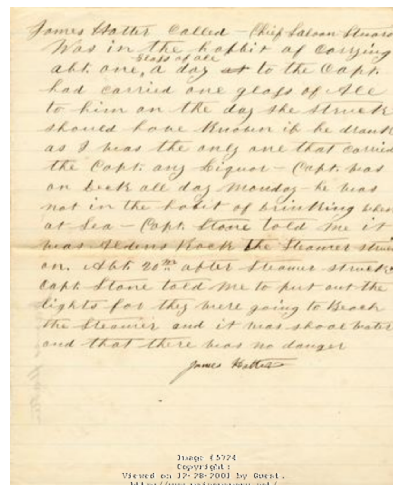 James Hatter Called – Chief Saloon Steward
Was in the habbit of Carrying
glass of ale
abt. one, a day at to the Capt.
had carried one glass of Ale
to him on the day she struck
should have Known if he drank
as I was the only one that carried
the Capt. any Liquor – Capt. was
on Deck all day Monday – he was
not in the habit of drinking when
at Sea – Capt. Stone told me it
was Aldens Rock the Steamer struck
on. Abt. 20 m after Steamer struck
Capt. Stone told me to put out the
lights for they were going to Beach
the Steamer and it was shoal water
and that there was no danger
James Hatter
Image 15724
Copyright:
Viewed on 12-28-2001 by Guest.